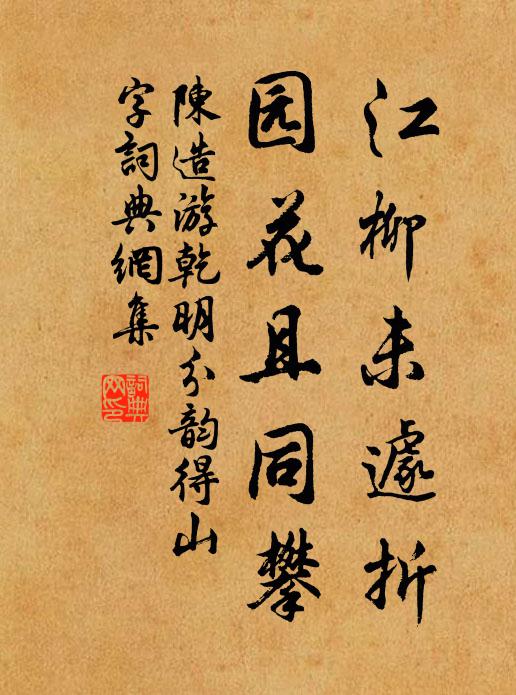 江柳未遽折
园花且同攀
陳造游乾明分韵得山
字詞典網集
詞典
网印